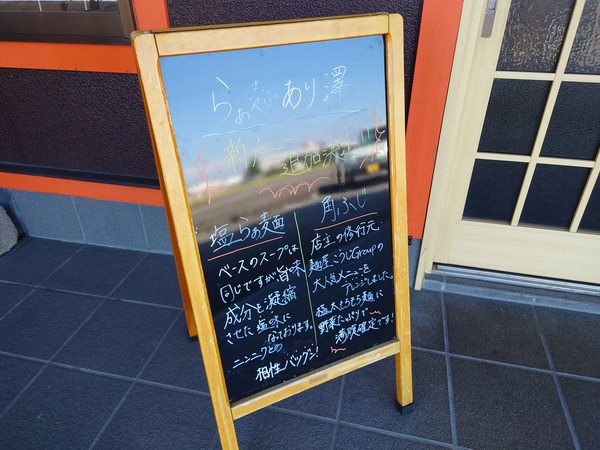 らぁ麺 あり澤
新メニュー追加決定
塩らぁ麺
ベースのスープは
同じですが旨味
成分を凝縮
させた塩味に
なっております。
ニンニクとの
相性バツグン!
角ふじ
店主の修行元
麺屋こうじGroupの
大人気メニューを
アレンジしました。
極太もちもち麺に
野菜たっぷりで
満腹確定です!